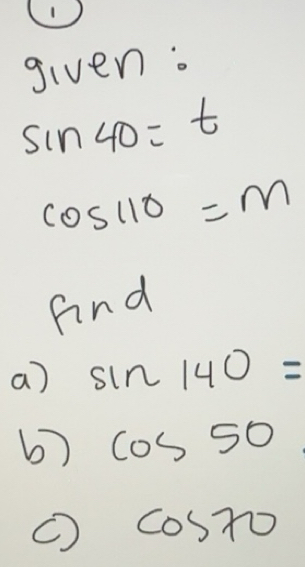 1
given :
sin 40 = t
cos 110 = m
find
a) sin 140 =
b) cos 50
c) cos 70